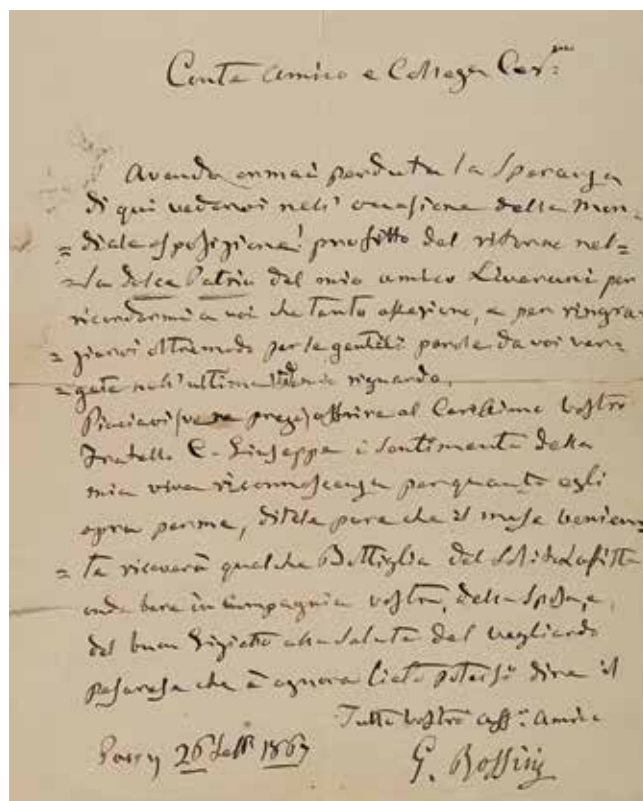 Conte Amico e Collega Car.mo
Avendo ormai perduta la Speranza
di qui vedervi nell' occasione della Mon
= diale esposizione! profitto del ritorno nel=
= la dolce Patria del mio amico Liverani per
ricordarmi a voi che tanto affeziono, e per ringra
= ziarvi oltremodo per le gentili parole da voi ver
= gate nell' ultima a mio riguardo.
Piacciavi (ve ne prego) offrire al Carissimo vostro
Fratello C. Giuseppe i Sentimenti della
mia viva riconnoscenza per quanto egli
opra per me, ditele pure che il mese venien
= te riceverà qualche Bottiglia del Solito Lafitte
onde bere in Compagnia vostra, della Sposa, e
del buon Gigietto alla Salute del vegliardo
Pesarese che è ognora lieto potersi dire il
Tutto vostro aff.o amico
Passy 26 Sett. 1867
G. Rossini